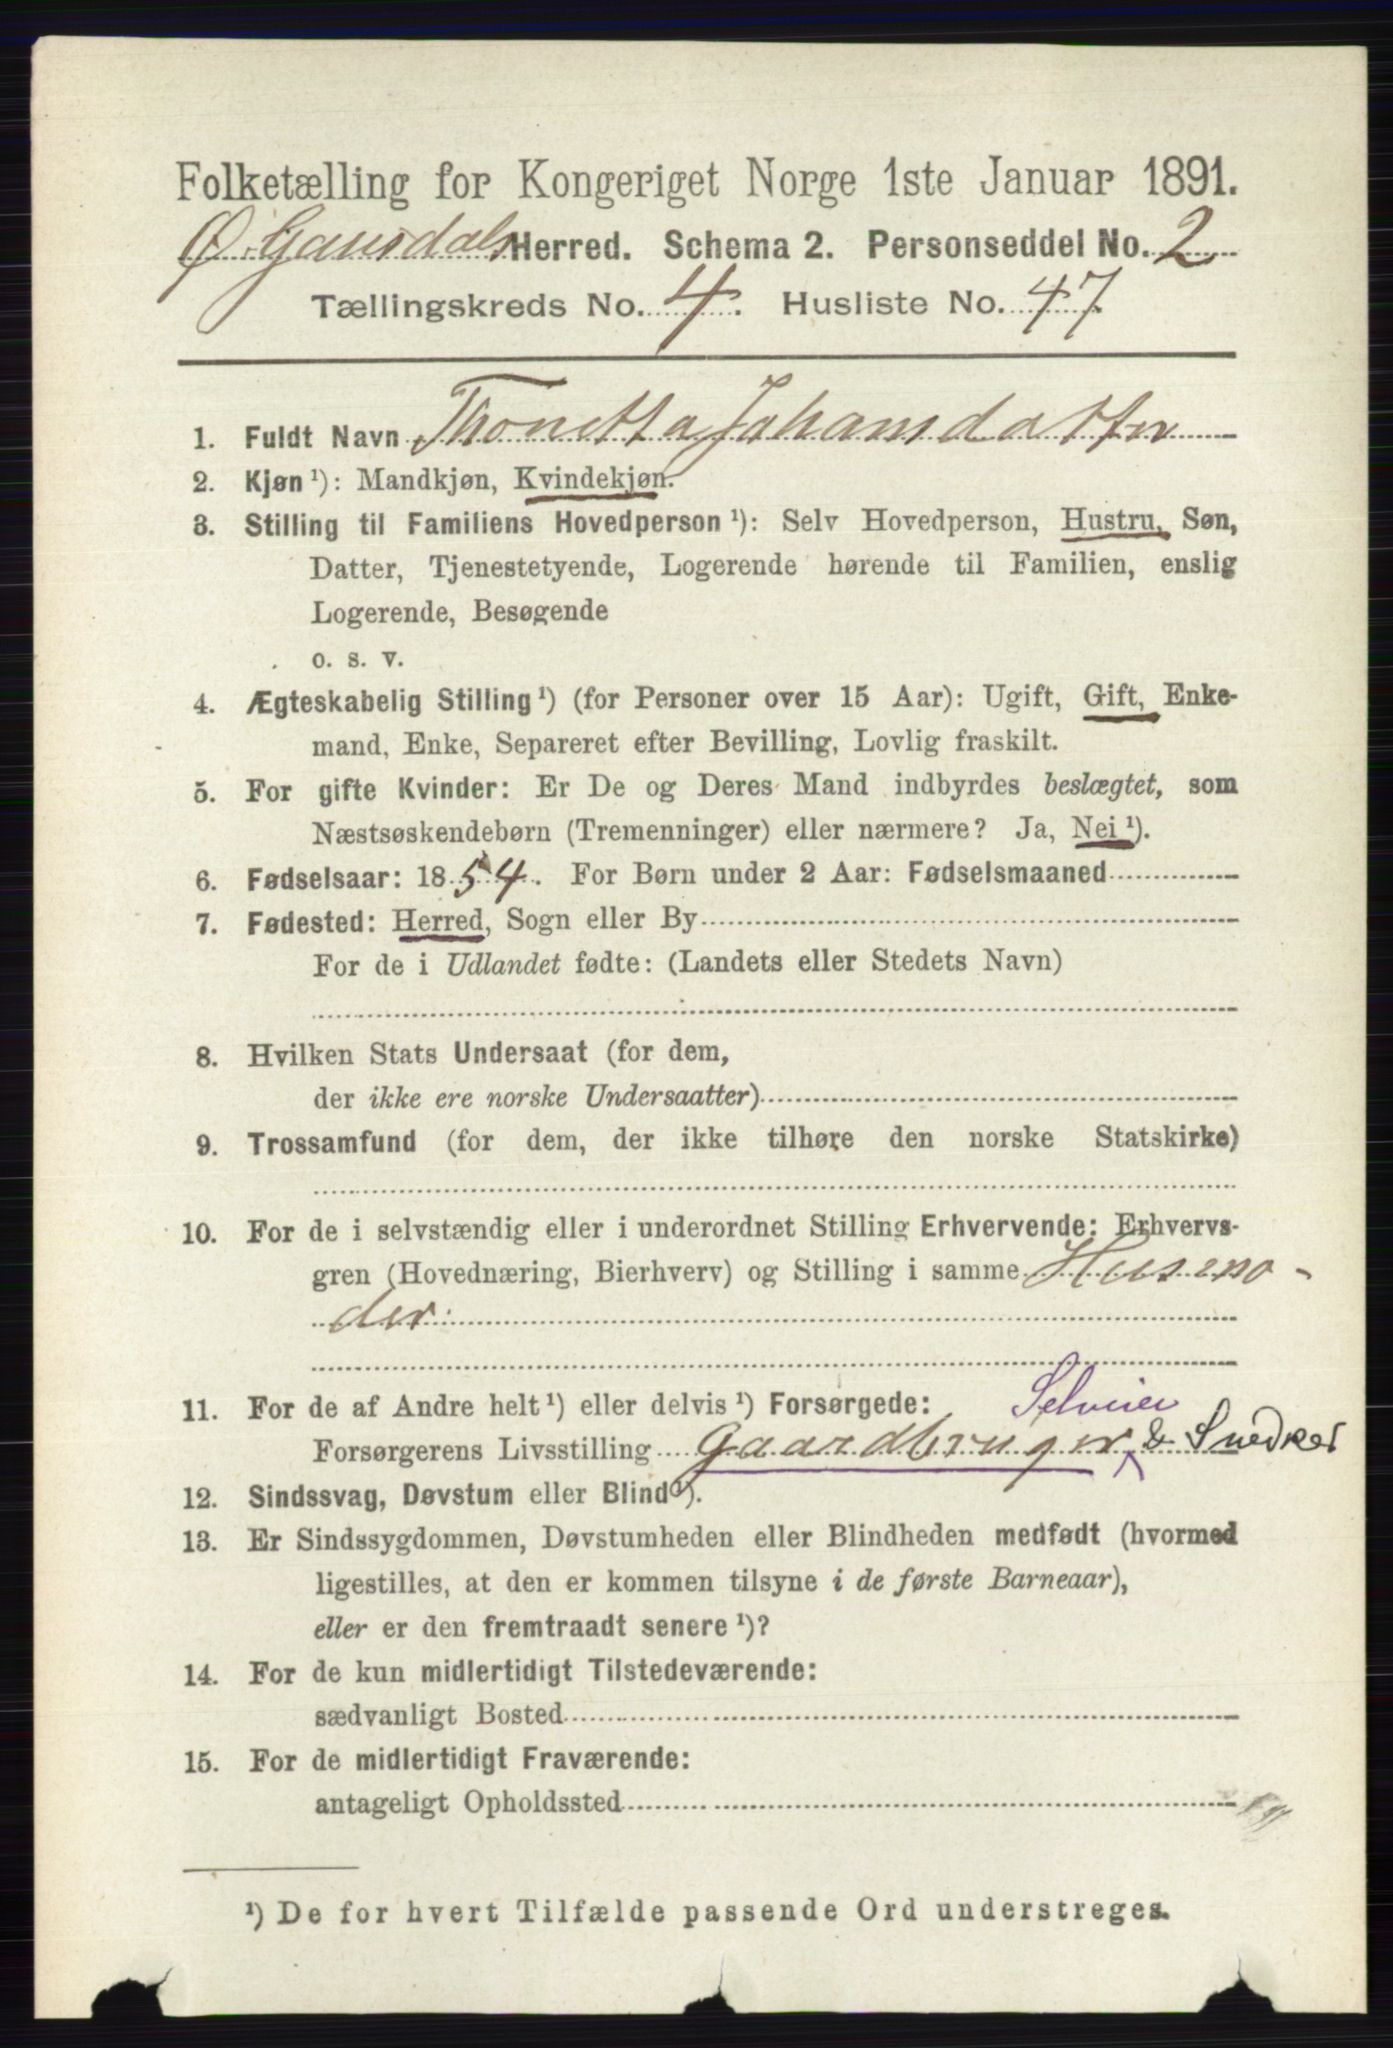 Folketælling for Kongeriget Norge 1ste Januar 1891.
Ø. Gausdals Herred. Schema 2. Personseddel No. 2
Tællingskreds No. 4. Husliste No. 47.
1. Fuldt Navn Thonetta Johansdatter
2. Kjøn ¹): Mandkjøn, Kvindekjøn.
3. Stilling til Familiens Hovedperson ¹): Selv Hovedperson, Hustru, Søn,
Datter, Tjenestetyende, Logerende hørende til Familien, enslig
Logerende, Besøgende
o. s. v.
4. Ægteskabelig Stilling ¹) (for Personer over 15 Aar): Ugift, Gift, Enke-
mand, Enke, Separeret efter Bevilling, Lovlig fraskilt.
5. For gifte Kvinder: Er De og Deres Mand indbyrdes beslægtet, som
Næstsøskendebørn (Tremenninger) eller nærmere? Ja, Nei ¹).
6. Fødselsaar: 1854. For Børn under 2 Aar: Fødselsmaaned
7. Fødested: Herred, Sogn eller By
For de i Udlandet fødte: (Landets eller Stedets Navn)
8. Hvilken Stats Undersaat (for dem,
der ikke ere norske Undersaatter)
9. Trossamfund (for dem, der ikke tilhøre den norske Statskirke)
10. For de i selvstændig eller i underordnet Stilling Erhvervende: Erhvervs-
gren (Hovednæring, Bierhverv) og Stilling i samme Husmo-
der
11. For de af Andre helt ¹) eller delvis ¹) Forsørgede: Selveier
Forsørgerens Livsstilling Gaardbruger & Snedker
12. Sindssvag, Døvstum eller Blind ¹).
13. Er Sindssygdommen, Døvstumheden eller Blindheden medfødt (hvormed
ligestilles, at den er kommen tilsyne i de første Barneaar),
eller er den fremtraadt senere ¹)?
14. For de kun midlertidigt Tilstedeværende:
sædvanligt Bosted
15. For de midlertidigt Fraværende:
antageligt Opholdssted
¹) De for hvert Tilfælde passende Ord understreges.